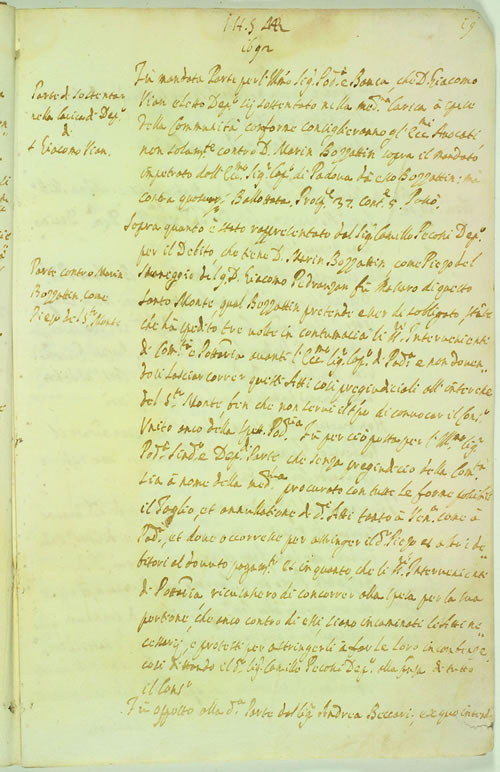 1692
19
Parte di sostentar
nella carica di Dep.
di
s. Giacomo Vian.
Fù mandata Parte per l'Ill.mo Sig. Pod.à e Banca che D. Giacomo
Vian eletto Dep. sij sostentato nella med.ma carica à spese
della Communità conforme consiglieranno gl'Ecc.mi Avocati
non solum.te contro D. Marin Bozzattin sopra il mandato
impetrato dall'Ecc.mo Sig. Cap. di Padova da esso Bozzattin: mà
contra quoscunq. Ballottata, Pro 37. Cont. 5.
Parte contro Marin
Bozzattin, come
Piezo del S. Monte
Sopra quanto è stato rappresentato dal Sig. Camillo Peconi Dep.
per il Debito, che tiene D. Marin Bozzattin, come Piezo del
Maneggio del q. D. Giacomo Pedrazzan fù Massaro di questo
Santo Monte qual Bozzattin pretende esser disobligato,
che hà spedito tre volte in contumacia li Intervenienti
di Com.tà e Podaria avanti l'Ecc.mo Sig. Cap. di Pad.a e non doven-
dosi lasciar correr questi Atti così pregiudiciali all'interesse
del S. Monte ben che non servi il di convocar il Cons.
Unito anco della Podaria Fù perciò posta per l'Ill.mo Sig.
Pod.à Sind. e Dep. Parte che senza pregiudicio della Com.tà
sia à nome della med.ma procurato con tutte le forme
il Taglio, et annullatione di d. Atti tanto à Ven.a come à
Pad.a, et dove occorrerà per astringer il d. Piezo et altri de-
bitori al dovuto pagam. et in quanto, che li Intervenienti
di Podaria ricusassero di concorrer alla spesa per la sua
portione, che anco contro di essi siano incaminati li Atti ne-
cessarij, e protesti per astringerli à far le loro
così il d. Sig. Camillo Peconi Dep. alla di tutto
il Cons.
Fù opposto alla d. Parte dal Sig. Andrea Beccari, ex quo